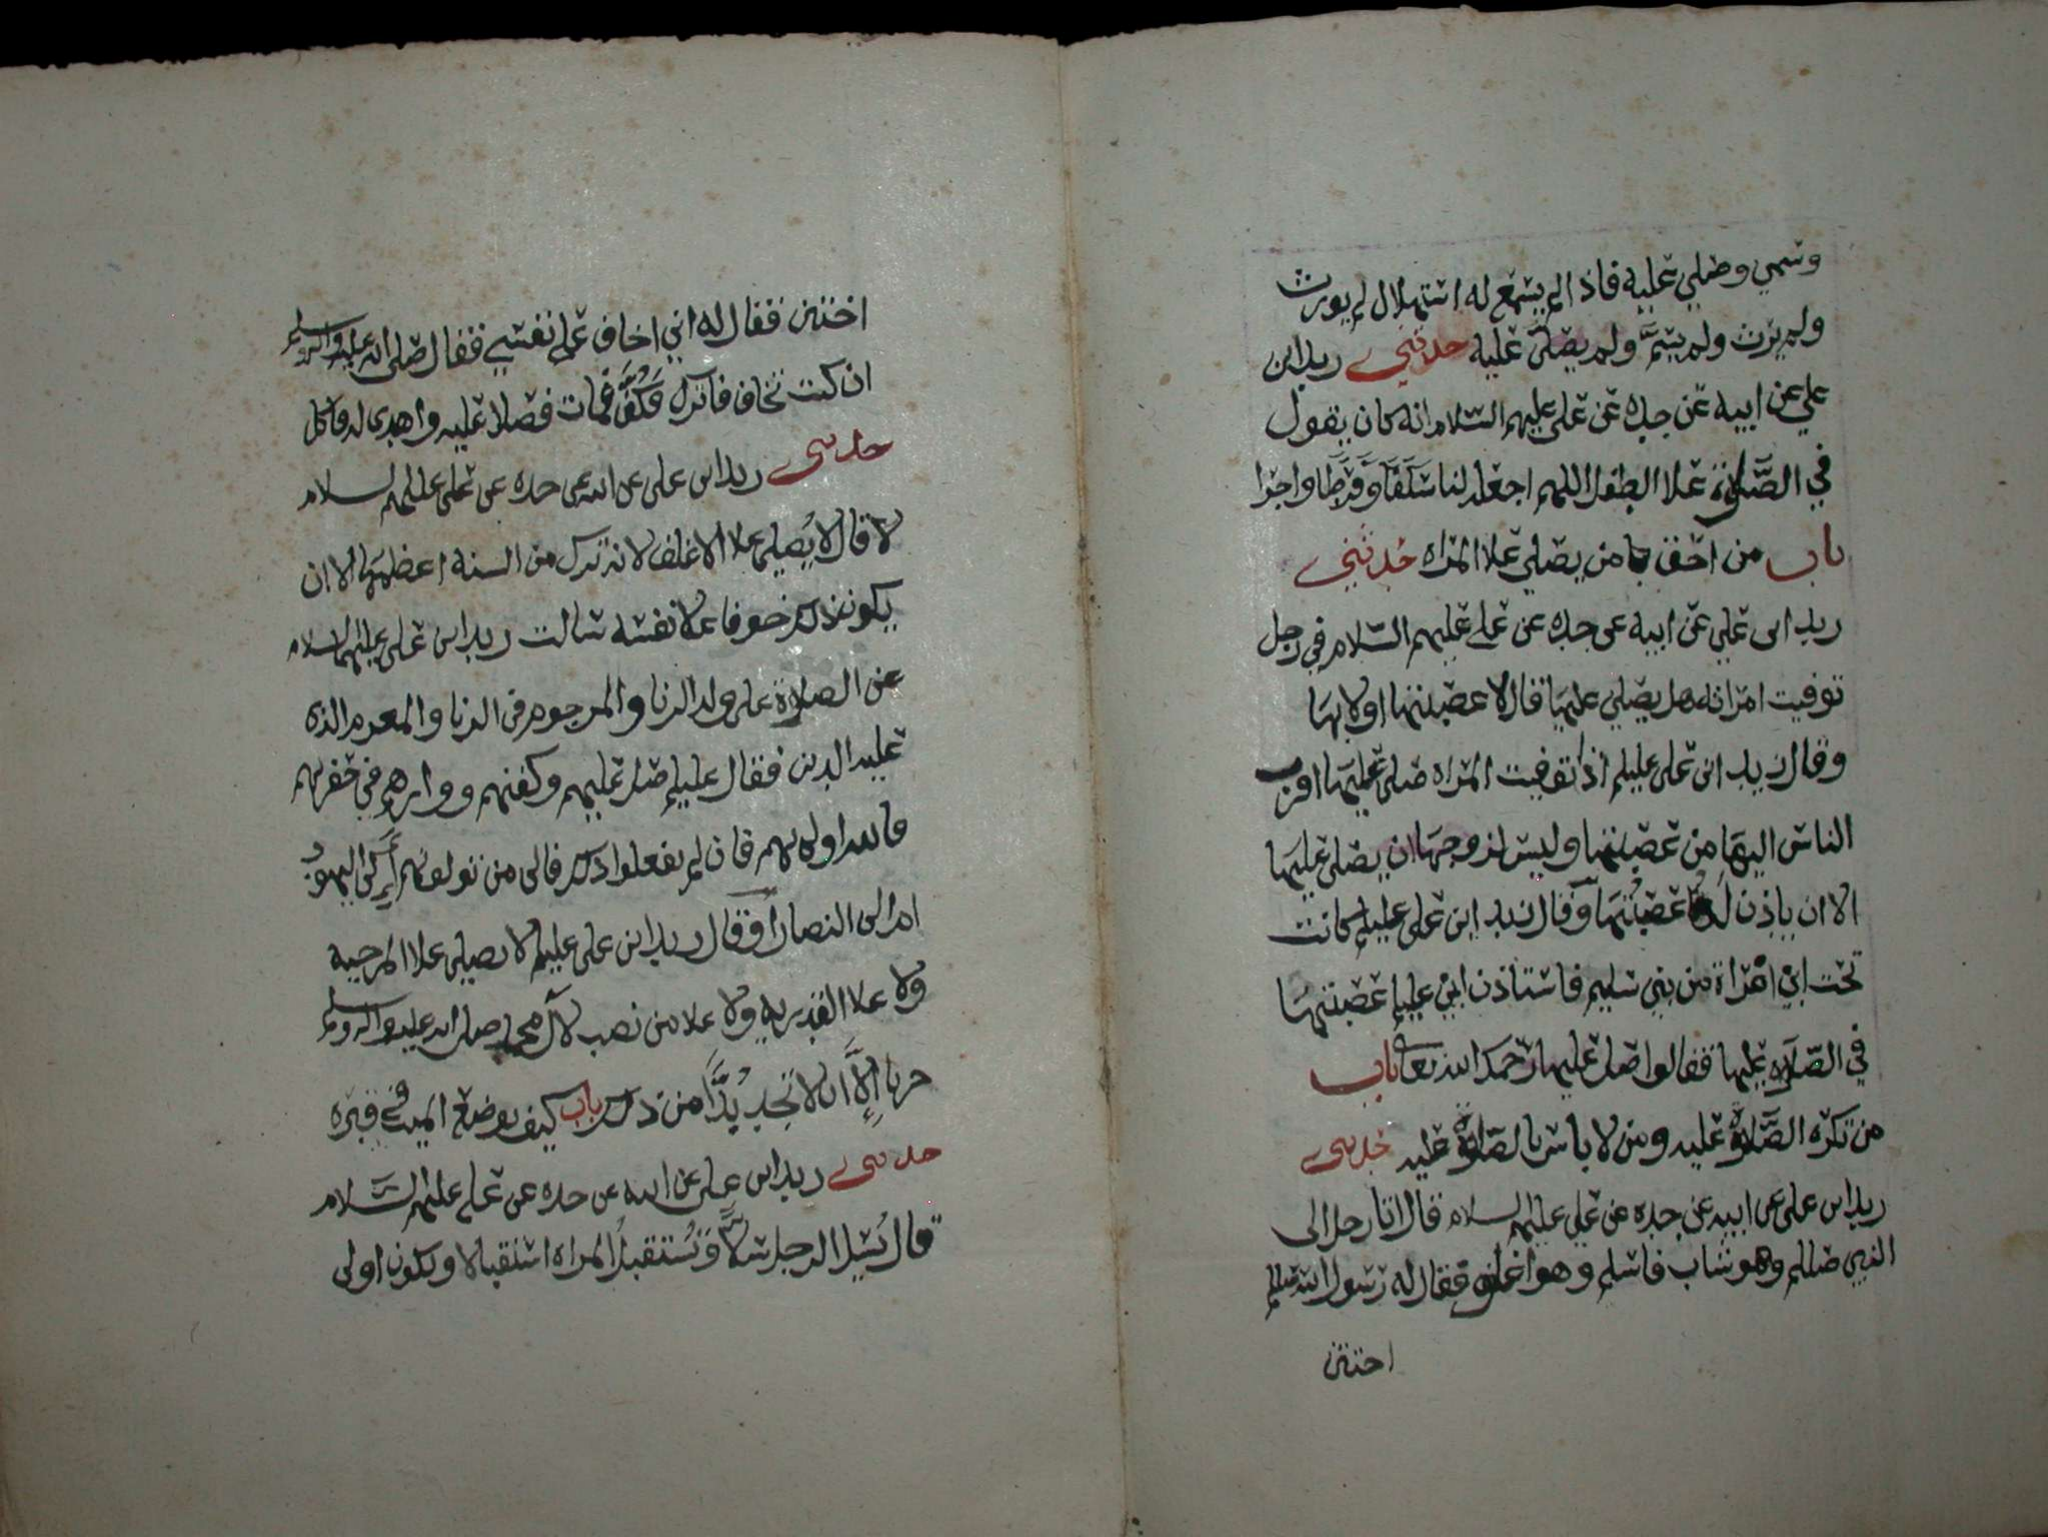 وسمي وصلي عليه فاذا لم يسمع له استهلال لم يورث
ولم يرث ولم يسمَّ ولم يصلى عليه حدثني زيد ابن
علي عن ابيه عن جده عن علي عليهم السلام انه كان يقول
في الصَّلوة علا الطفل اللهم اجعله لنا سَلَفًا وَفَرَطًا واجرا
باب من احق بامن يصلي علا المراه حدثني
زيد ابن علي عن ابيه عن جده عن علي عليهم السلام في رجل
توفيت امراته هل يصلي عليها قال لا عصبتها اولا بها
وقال زيد ابن علي عليلم اذا توفيت المراه صلى عليها اقرب
الناس اليها من عصبتها وليس لزوجها ان يصلي عليها
الا ان ياذن له عَصَبتُها وقال زيد ابن علي عليلم كانت
تحت ابي امراة من بني سليم فاستاذن ابي عليلم عصبتها
في الصَّلاة عليها فقالوا صل عليها رحمك الله تعا باب
من تكره الصَّلاة عليه ومن لا باس بالصَّلاة عليه حدثني
زيد ابن علي عن ابيه عن جده عن علي عليهم السلام قال اتا رجل الى
النبي صللم وهو شاب فاسلم وهو اغلف فقال له رسول الله صللم
اختتن
اختتن فقال له اني اخاف على نفسي فقال صلى الله عليه واله وسلم
ان كنت تخاف فاترك فكُفَّ فمات فصلا عليه واهدي له فاكل
حدثني زيد ابن علي عن ابيه عن جده عن علي عليهم السلام
لا قال لا يُصلي علا الاغلف لانه ترك من السنة اعظمها الا ان
يكون ذلك خوفا علا نفسه سالت زيد ابن علي عليهما السلام
عن الصلاة على ولد الزنا والمرجوم في الزنا والمغرم الذي
عليه الدين فقال عليلم صل عليهم وكفنهم ووارهم في حفرهم
فانت اولى بهم فان لم يفعلوا ذلك فالى من تولونهم أَإِلى اليهودِ
ام الى النصارا وقال زيد ابن علي عليلم لا يصلي علا المرجيه
ولا علا القدريه ولا علا من نصب لآل محمد صلى الله عليه واله وسلم
حربا إِلَّا ان لا تجد بُدَّاً من ذلك باب كيف يوضع الميت في قبره
حدثني زيد ابن علي عن ابيه عن جده عن علي عليهم السَّلام
قال يُسَل الرجل سَلًّا وتُستقبلُ المراه استقبالا ويكون اولى